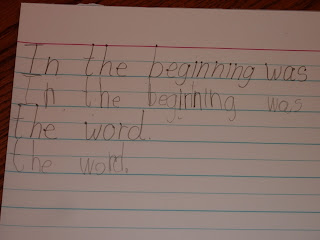 In the beginning was
In the beginning was
the word.
the word.